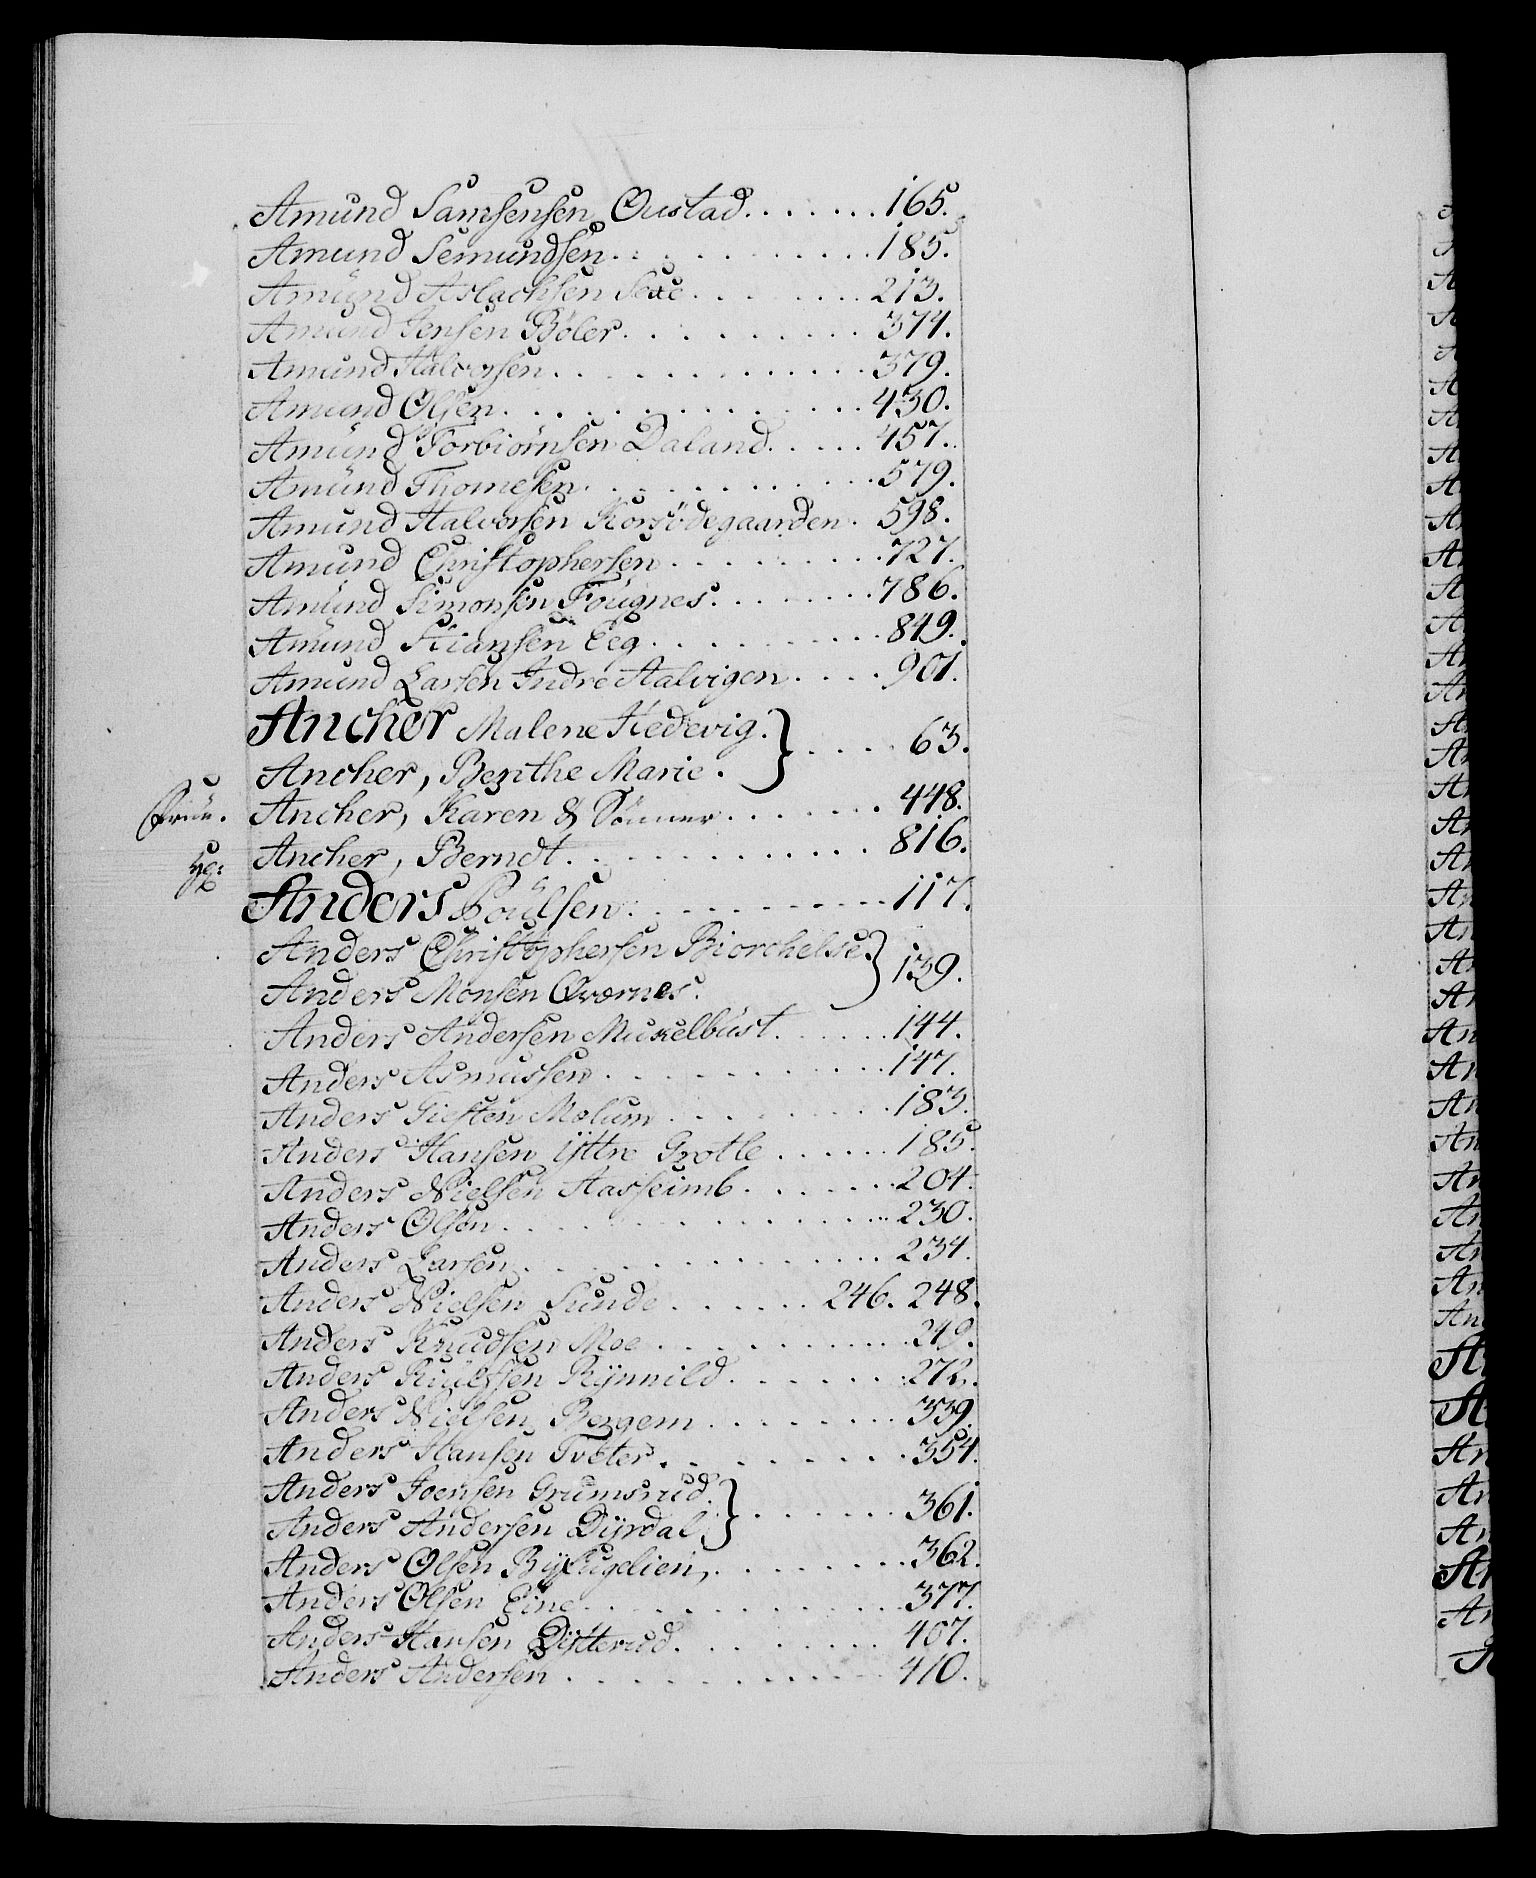 Amund Samsensen Oustad . . . . . . . 165.
Amund Semundsen . . . . . . . . . . . 185.
Amund Aslachsen Sexe . . . . . . . . 213.
Amund Jensen Böler . . . . . . . . . 374.
Amund Halvorsen . . . . . . . . . . . 379.
Amund Olsen . . . . . . . . . . . . . 430.
Amünd Torbiörnsen Daland . . . . . 457.
Amünd Thomesen . . . . . . . . . . . 579.
Amund Halvorsen Korsödegaarden . 598.
Amund Christophersen . . . . . . . . 727.
Amünd Simonsen Fougnes . . . . . . . 786.
Amünd Kiansen Eeg . . . . . . . . . 849.
Amund Larsen Indre Aalvigen . . . . 901.
Ancher Malene Hedevig. } . . . . . 63.
Ancher, Benthe Marie.
Früe. Ancher, Karen & Sönner . . . . . . . 448.
Hr: Ancher, Berndt . . . . . . . . . . . . 816.
Anders Poülsen . . . . . . . . . . . 117.
Anders Christophersen Biorchelse. } 139.
Anders Monsen Qværnes.
Anders Andersen Mickelbust . . . . . . 144.
Anders Asmussen . . . . . . . . . . . 147.
Anders Giesten Molum . . . . . . . . 183.
Anders Hansen Ÿttre Grotle . . . . . . 185.
Anders Nielsen Aasheimb . . . . . . . 204.
Anders Olsen . . . . . . . . . . . . . 230.
Anders Larsen . . . . . . . . . . . . 234.
Anders Nielsen Sunde . . . . . . 246. 248.
Anders Knudsen Moe . . . . . . . . . . 249.
Anders Rülssen Rÿnnild . . . . . . . 272.
Anders Nielsen Bergem . . . . . . . . 339.
Anders Hansen Tveter . . . . . . . . . 354.
Anders Joensen Grumsrud. } . . . . . . . 361.
Anders Andersen Dÿrdal.
Anders Olsen Bÿfugelien, . . . . . . . . 362.
Anders Olsen Eine . . . . . . . . . . . 377.
Anders Hansen Disterud . . . . . . . . 407.
Anders Andersen . . . . . . . . . . . 410.